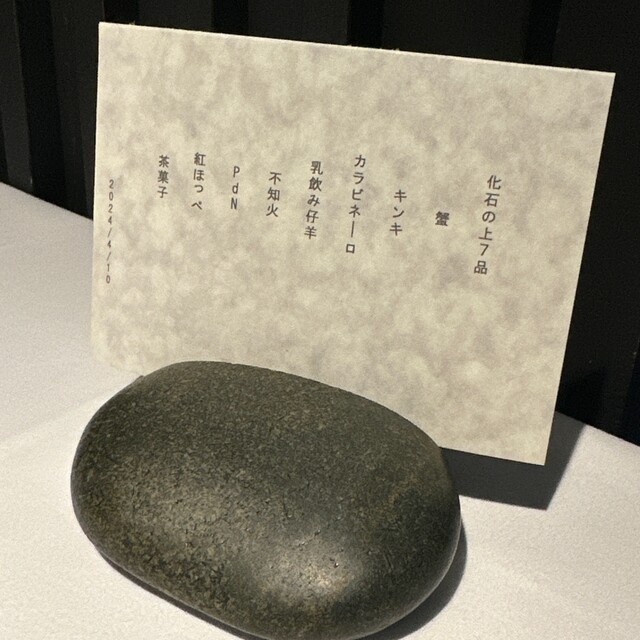 化石の上7品
蟹
キンキ
カラビネーロ
乳飲み仔羊
不知火
PdN
紅ほっぺ
茶菓子
2024/4/10